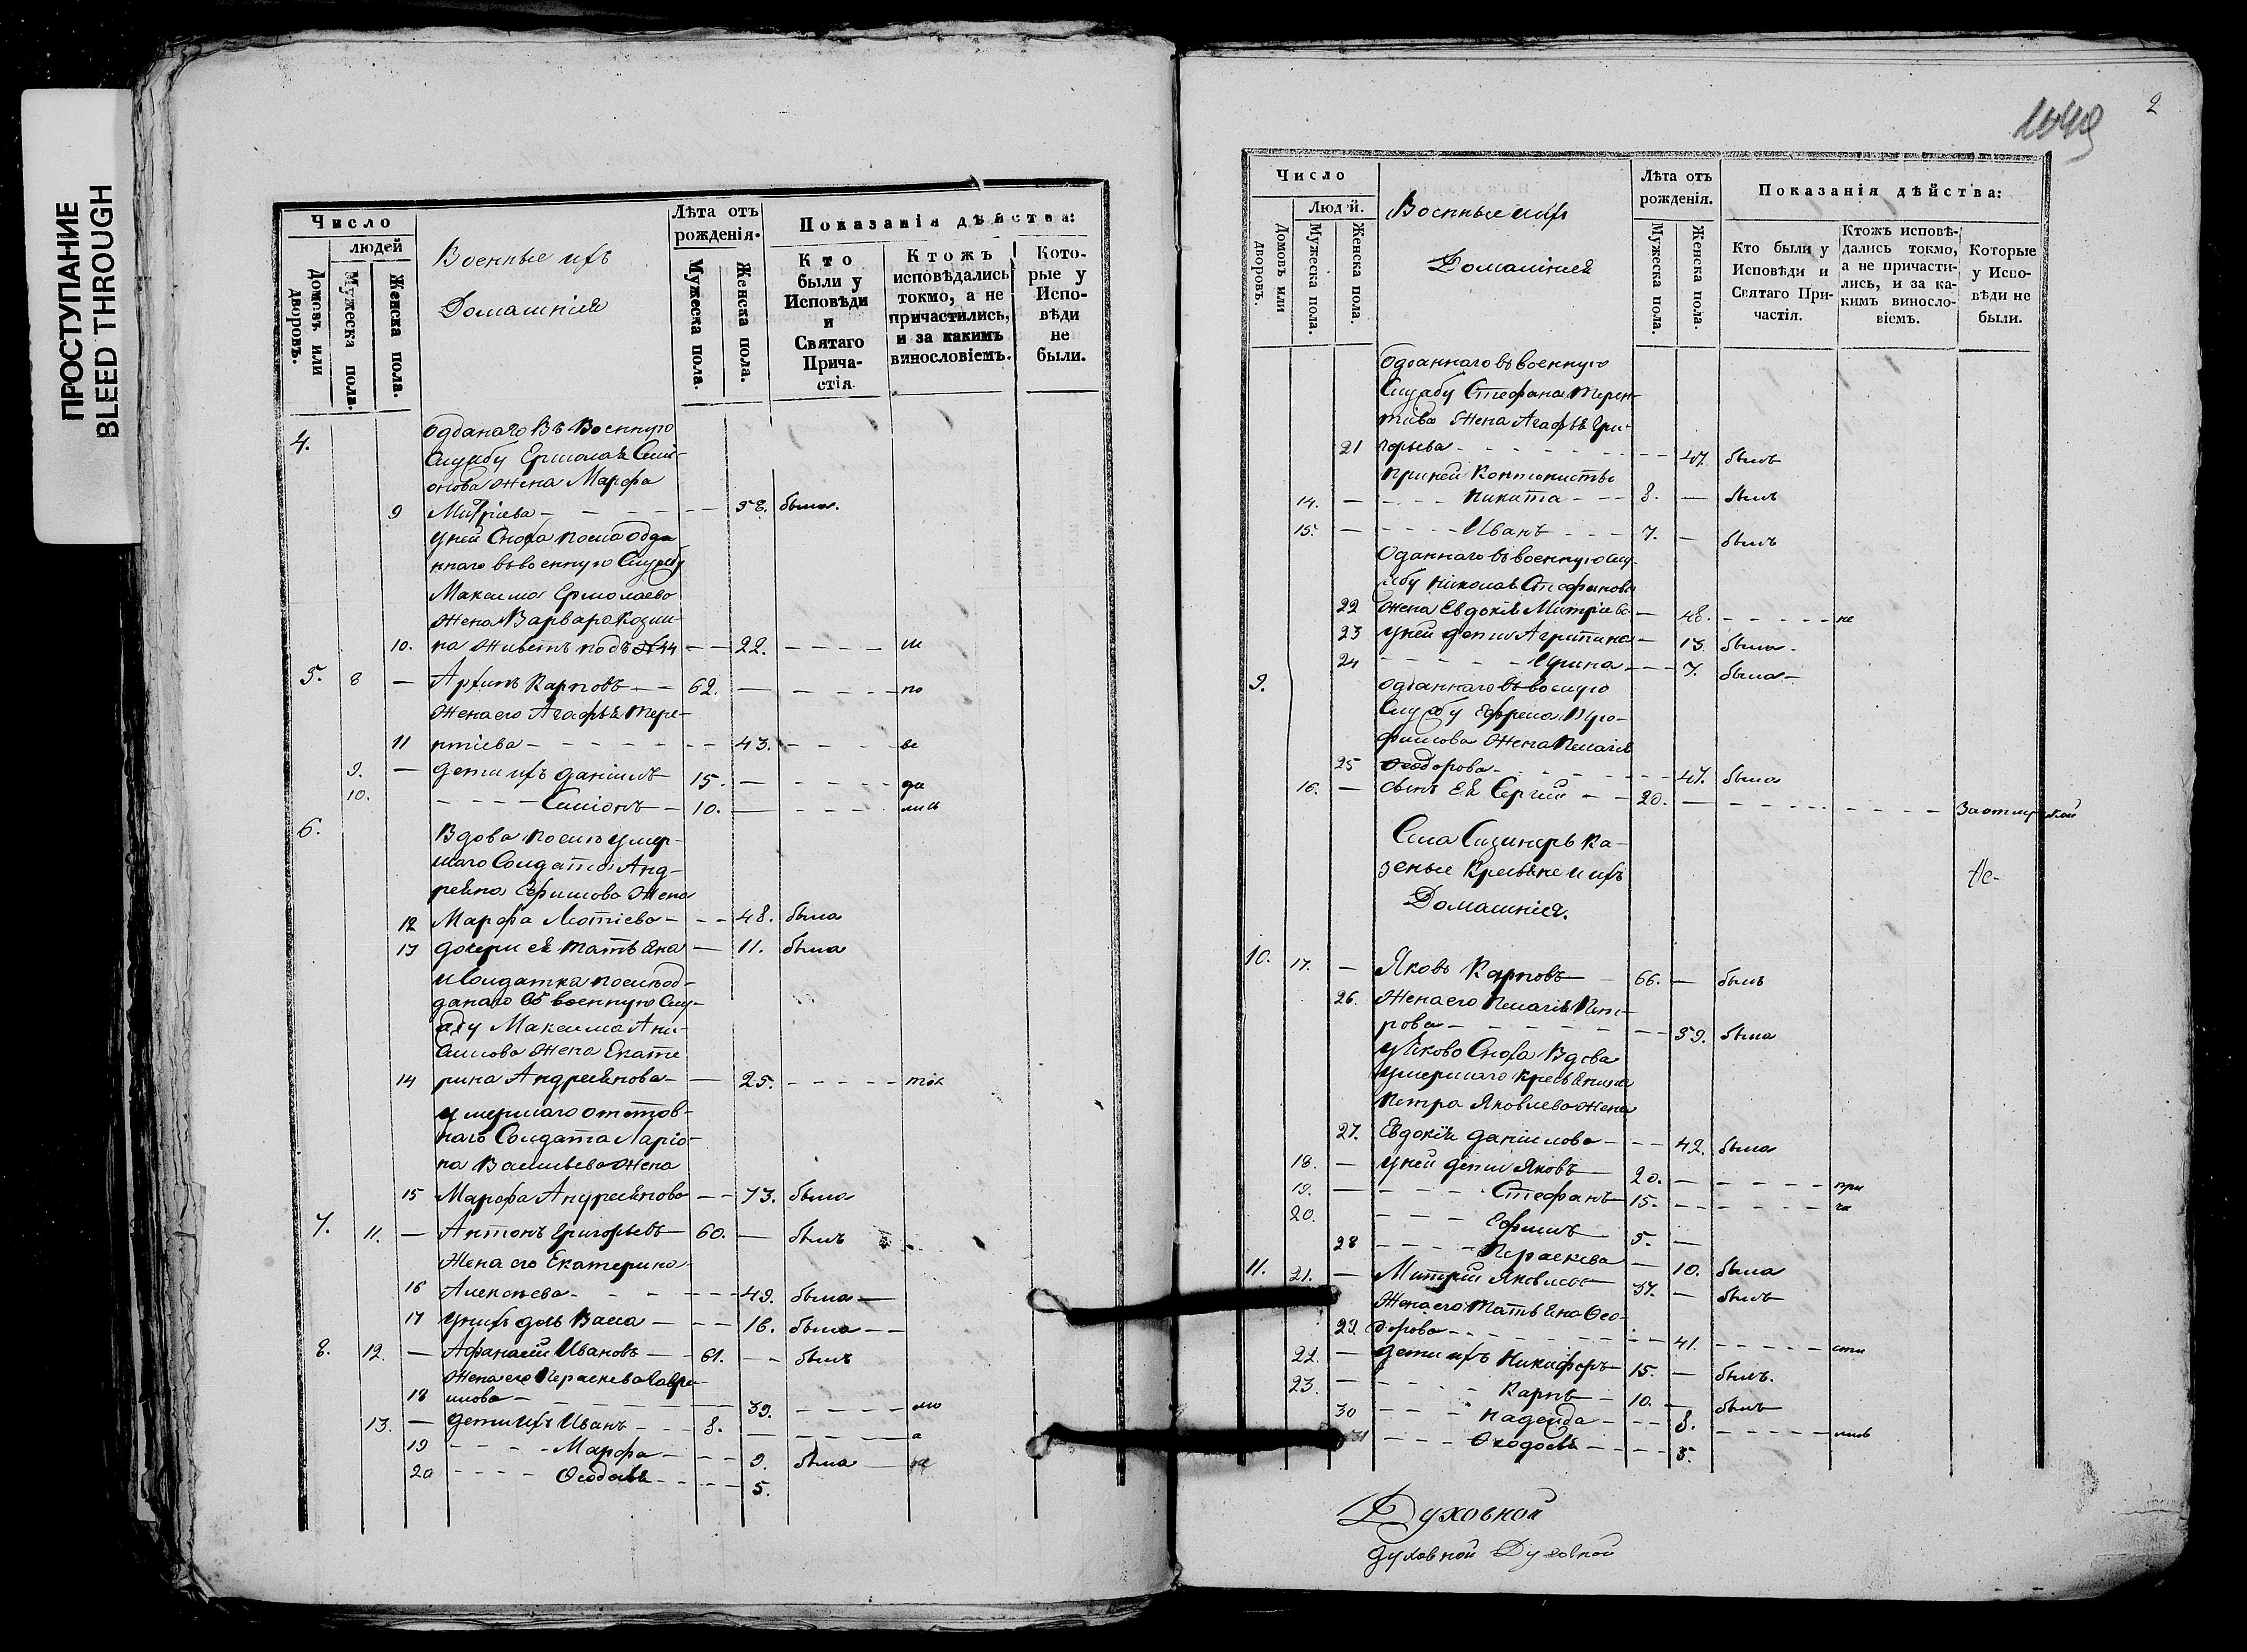 ПРОСТУПАНИЕ
BLEED THROUGH
Число
людей
Домовъ или дворовъ.
Мужеска пола.
Женска пола.
Военные ихъ
Домашнія
Лѣта отъ рожденія.
Мужеска пола.
Женска пола.
Показанія дѣйства:
Кто были у Исповѣди и Святаго Причастія
Ктожъ исповѣдались токмо, а не причастились, и за какимъ винословіемъ.
Которые у Исповѣди не были.
4. Одданаго въ Военную
Службу Ермолая Сими-
онова жена Марфа
9 Митріева - - - 58. была.
у ней Сноха посла одда-
ннаго въ военную Службу
Максима Ермолаева
жена Варвара Козми-
10. на живетъ подъ № 44 - - 22. - - - -
5. 8 — Архипъ Карповъ - - 62. — - - - - по
Жена его Агафья Тере-
11 нтіева - - - - 43. - - - - ве
9. — дети ихъ Даніилъ 15. — - - - - да
10. - - - - Симіонъ - 10. — - - - - лись
6. Вдова посль умер-
шаго Солдата Анд-
реяна Ефимова Жена
12 Марфа Лютіева - - - 48. была
13 дочери ея Татьяна — 11. была
и Солдатка посль од-
данаго въ военную Слу-
жбу Максима Ани-
симова жена Екате
14 рина Андреянова - — 25. - - - - - ток
умершаго отстов-
наго Солдата Ларіо-
на Васильева жена
15 Марфа Андреянова - - 73. была
7. 11. — Антонъ Григорьевъ 60. — былъ
Жена его Екатерина
16 Алексѣева - - - - 49. была —
17 у нихъ дочь Васса — - - 16. была - -
8. 12. — Афанасій Ивановъ - - 61. - - былъ
Жена его Параскева Ефре-
18 имова - - - 39. - - - - мо
13. — дети ихъ Иванъ - - - 8. — — — а
19 - - - - Марфа - - - 9. была - не
20 - - - - Феодосья - - - 5.
1049
2
Число
Людей.
Домовъ или дворовъ.
Мужеска пола.
Женска пола.
Военные ихъ
Домашнія
Лѣта отъ рожденія.
Мужеска пола.
Женска пола.
Показанія дѣйства:
Кто были у Исповѣди и Святаго Причастія.
Ктожъ исповѣдались токмо, а не причастились, и за какимъ винословіемъ.
Которые у Исповѣди не были.
Одданнаго въ военную
Службу Стефана Терен-
тіева Жена Агафья Гри-
21 горьева - - - - - - 47. былъ
при ней Кантонисты
14. — - - - Никита - - - 8. — былъ
15. — - - - - Иванъ - - - 7. — былъ
Оданнаго въ военную слу-
жбу Николая Стефанова
22 жена Евдокія Митріева — 48. - - - - - не
23 у ней дети Агрипина — 13. была -
24 - - - - - Ирина - - - 7. была -
9. Одданнаго въ военую
Службу Ефрема Про-
фимова Жена Пелагія
25 Феодорова - - - - - 47. была
16. — сынъ ея Сергій - - 20. — - - - - - - За отлучкой
Села Сизинерь Ка-
зеные Кресьяне и ихъ
Домашнія.
Не-
10. 17. — Яковъ Карповъ — - 66. — былъ
26. Жена его Пелагія Пет-
рова - - - - - - 59. была
у Якова Сноха Вдова
умершаго кресьянина
Петра Яковлева жена
27. Евдокія Даніилова - - - 42. была
18. — у ней дети Яковъ — 20. — - - - - - при
19. — - - - - Стефанъ — 15. - - - - - - - ча
20. - - - - Ефимъ 5. —
28 - - - - Параскева — 10. была
11. 21. — Митрій Яковлевъ 37. — былъ
Жена его Татьяна Фео-
29. дорова - - - - - - 41. - - - - - сти
22. — дети ихъ Никифоръ 15. — былъ.
23. — - - - - Карпъ - 10. — былъ
30 - - - - Надежда - - - 8. - - - - - лись
31 - - - Феодосья - - - - 5.
Духовной
духовной Духовной